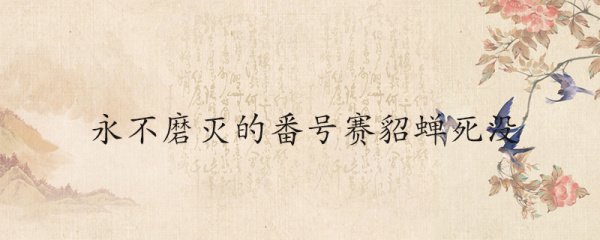 永不磨灭的番号赛貂蝉死没